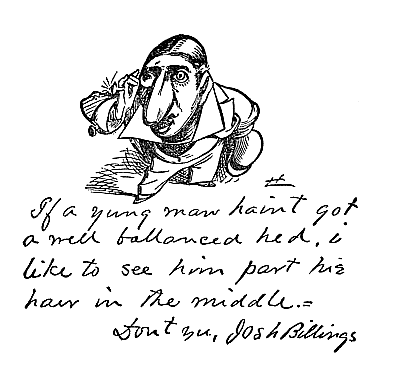 If a yung man haint got
a well ballanced hed, i
like to see him part his
hair in the middle.=
Dont yu, Josh Billings